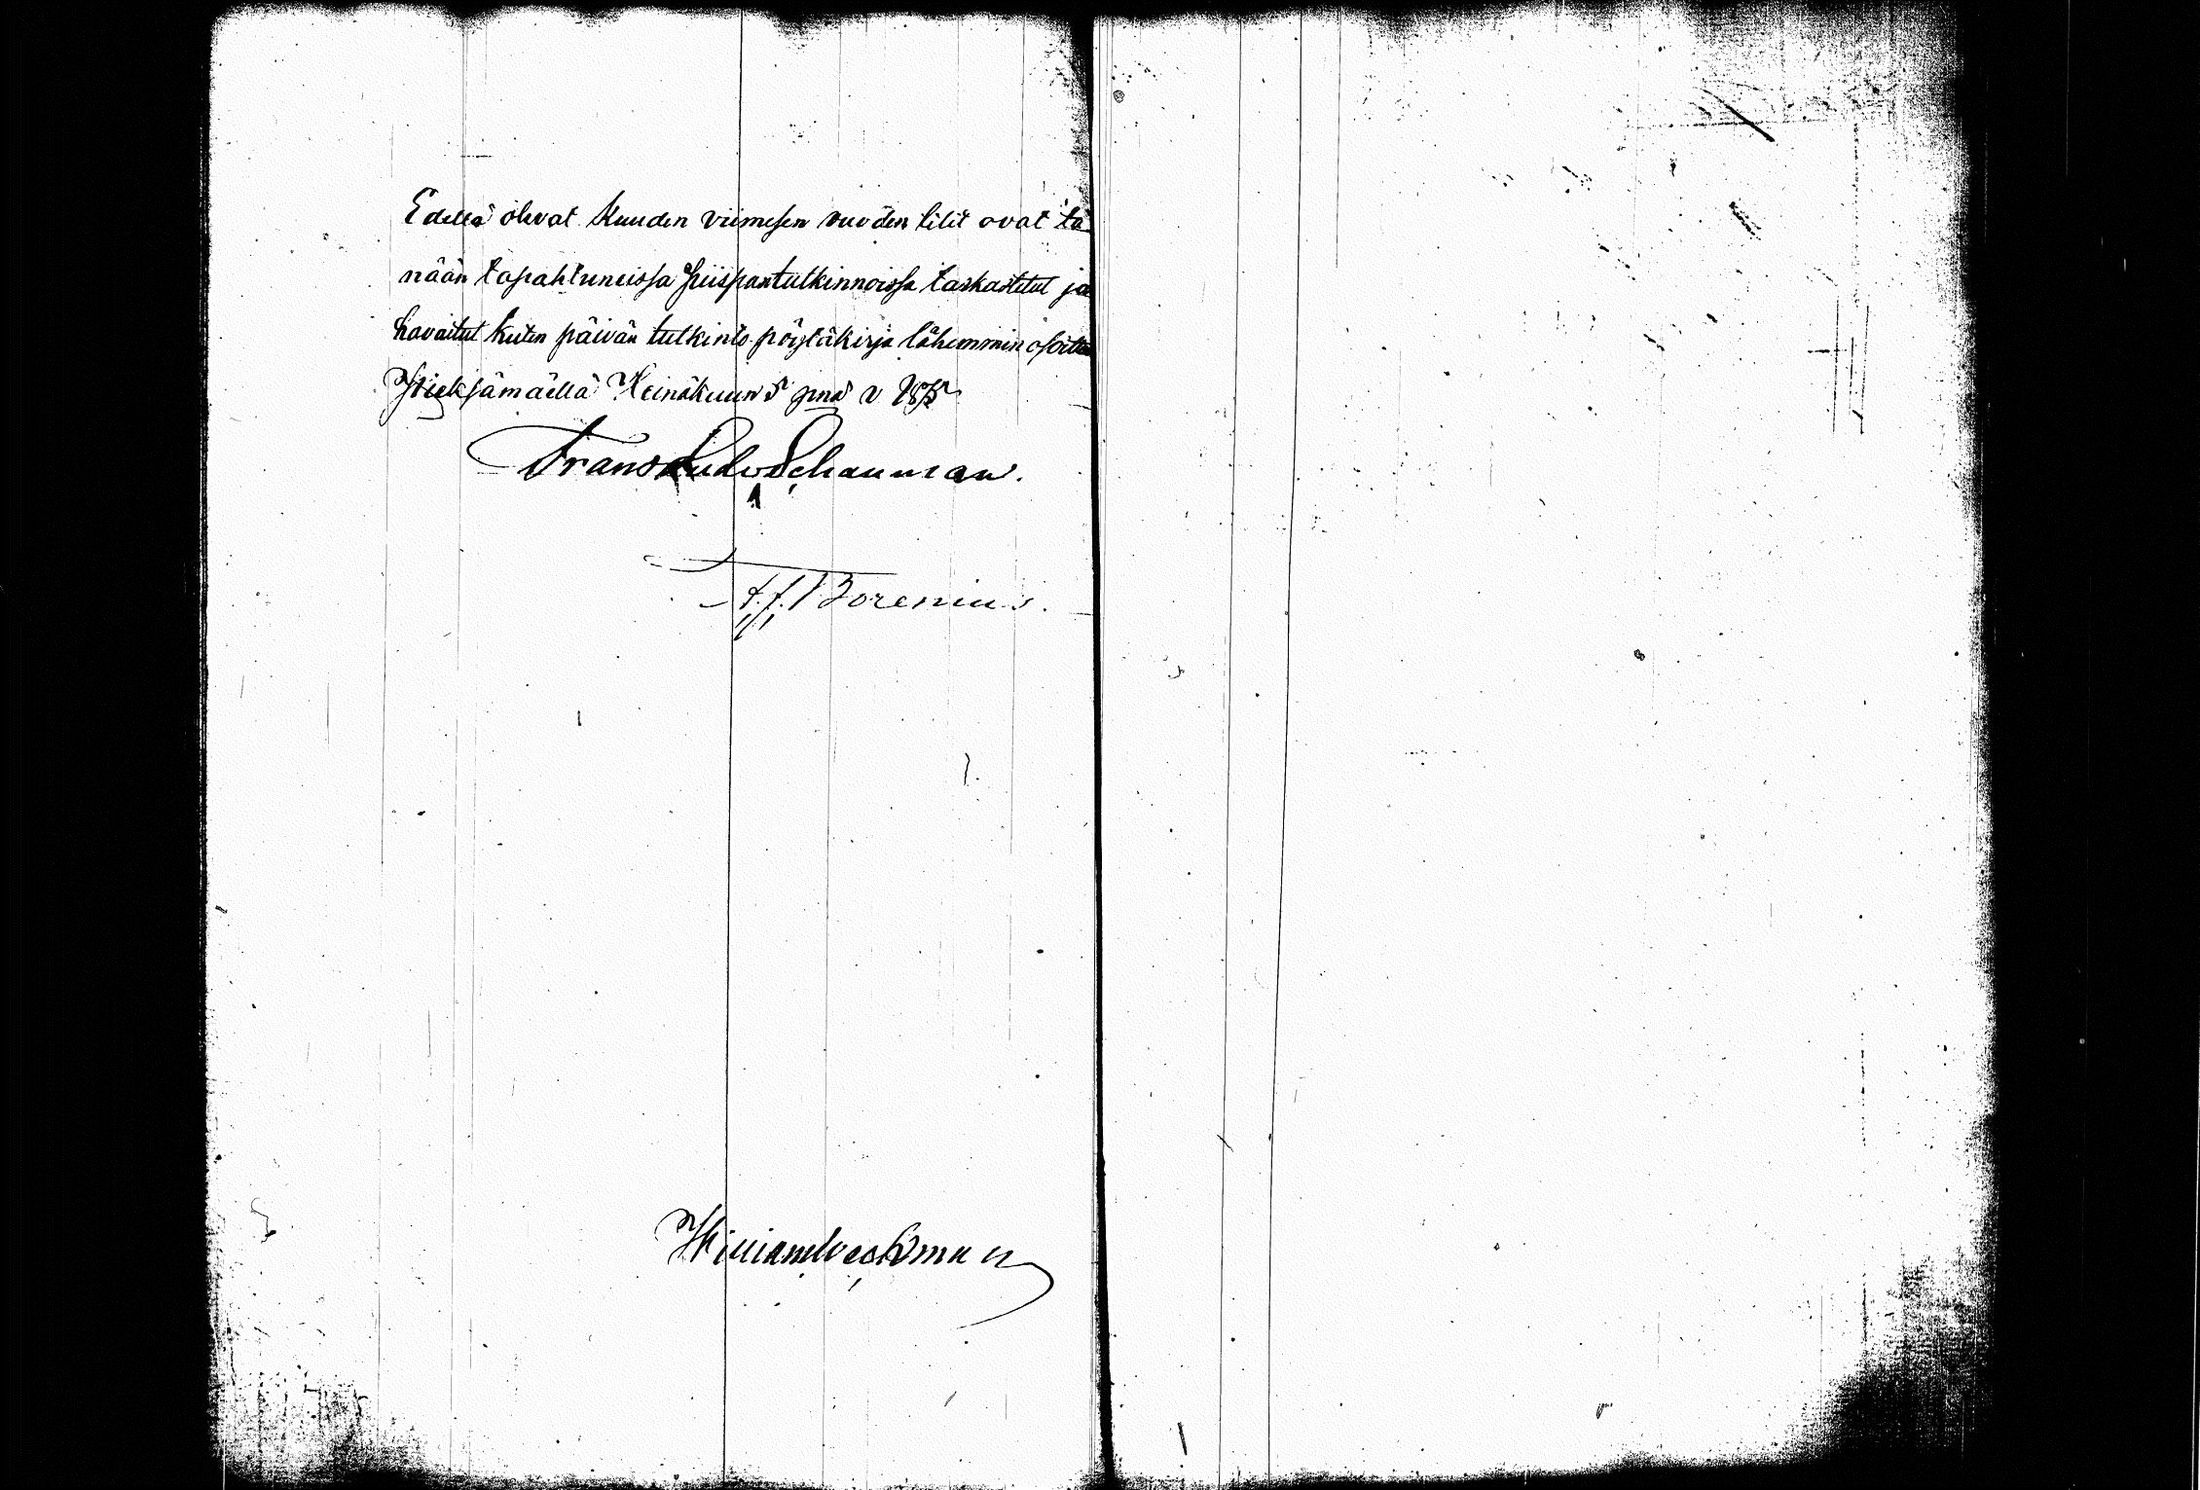 Edellä olevat kuuden viimesen vuoden tilit ovat tä
nään tapahtuneissa piispantutkinnoissa tarkastetut ja
havaitut kuten päivän tutkinto pöytäkirja lähemmin osoittaa
Pieksämäellä Heinäkuun 5 pnä v 1875
Frans Ludv Schauman.
A. f. Borenius.